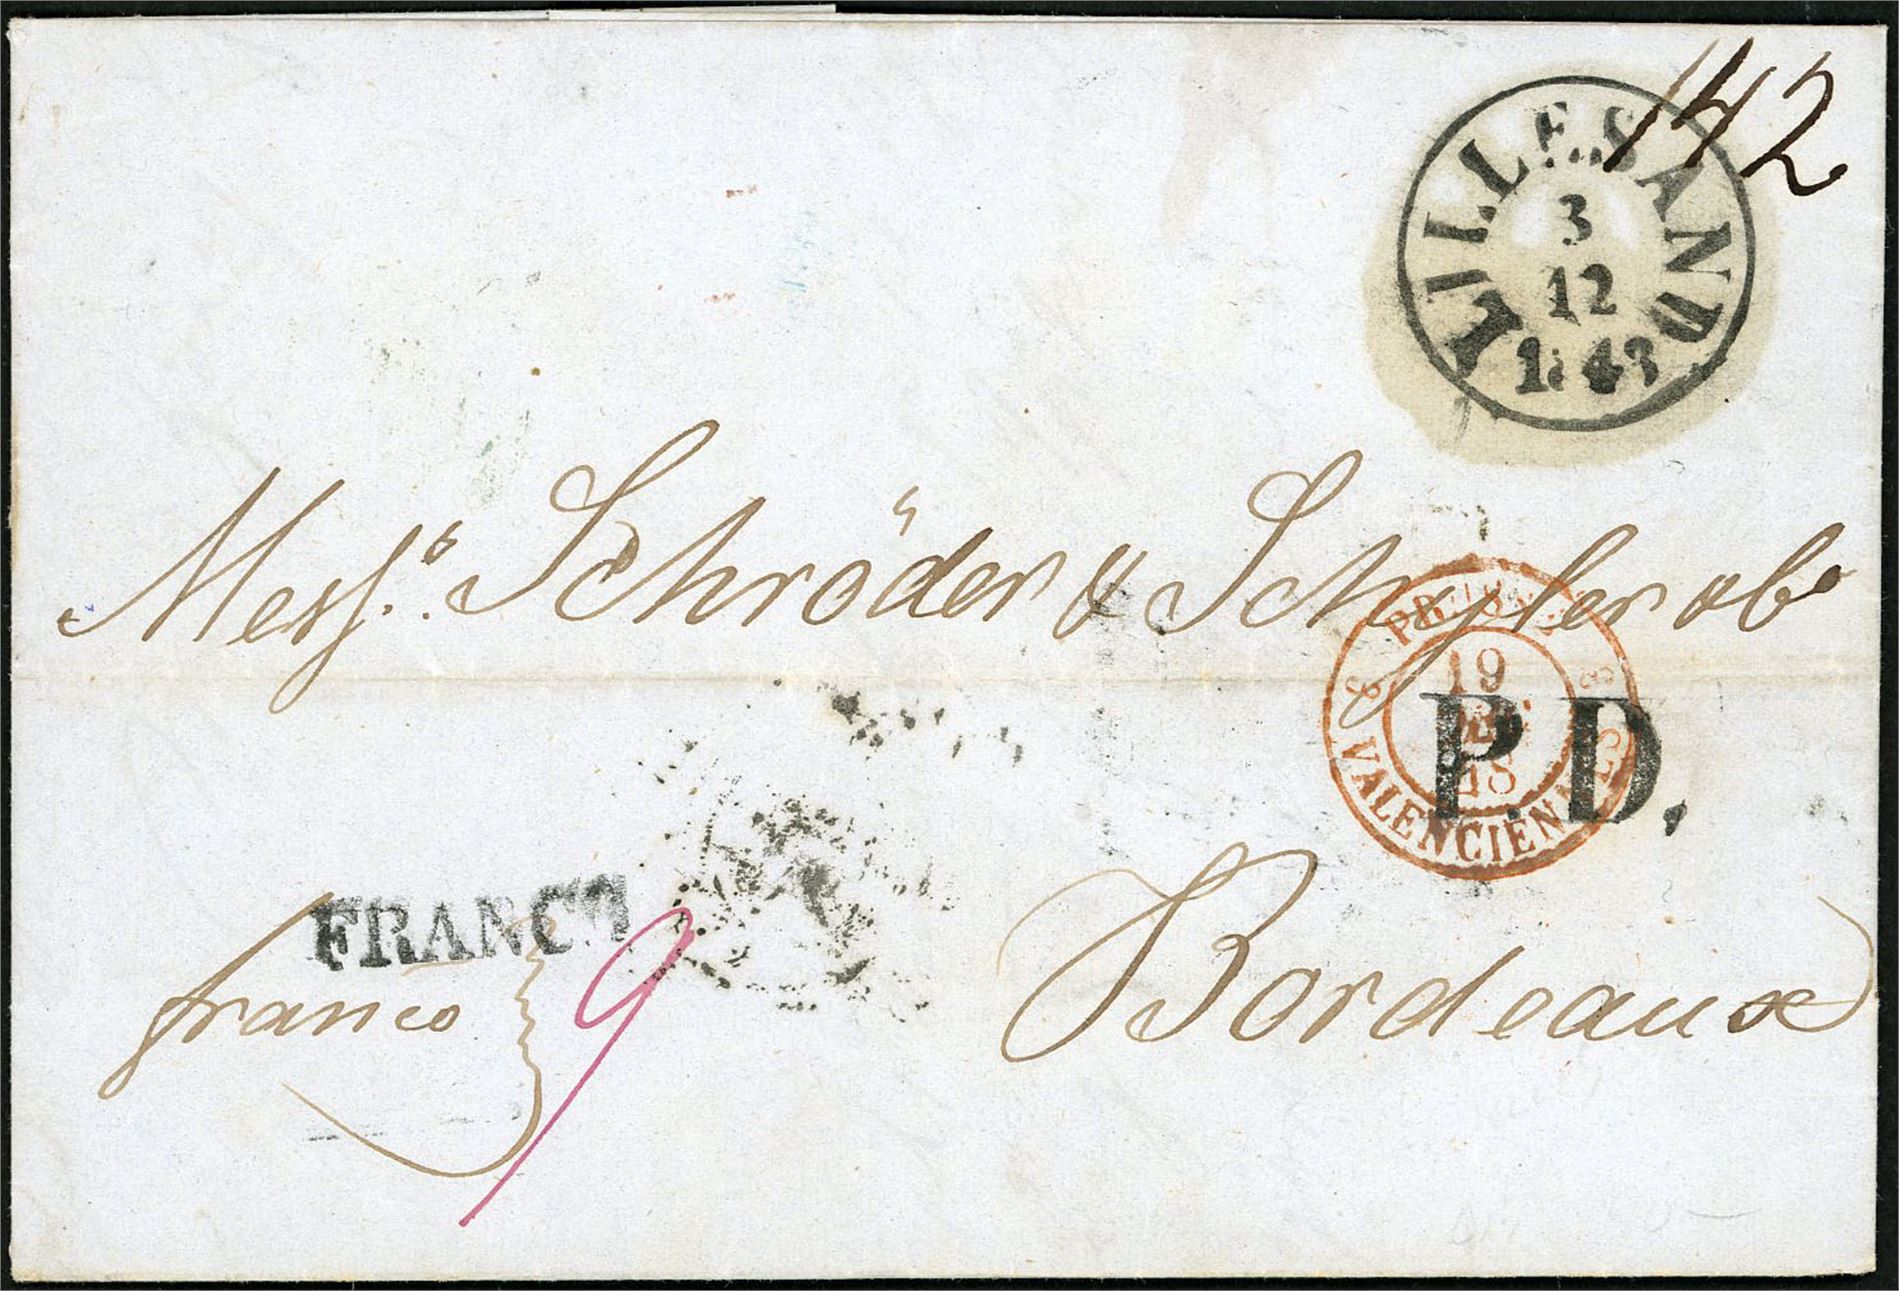 142
LILLESAND
3
12
1843
Messrs. Schröder & Schyler & Co
PRUSSE
19
48
3 VALENCIENNES 3
P.D.
FRANCO
franco
9
Bordeaux